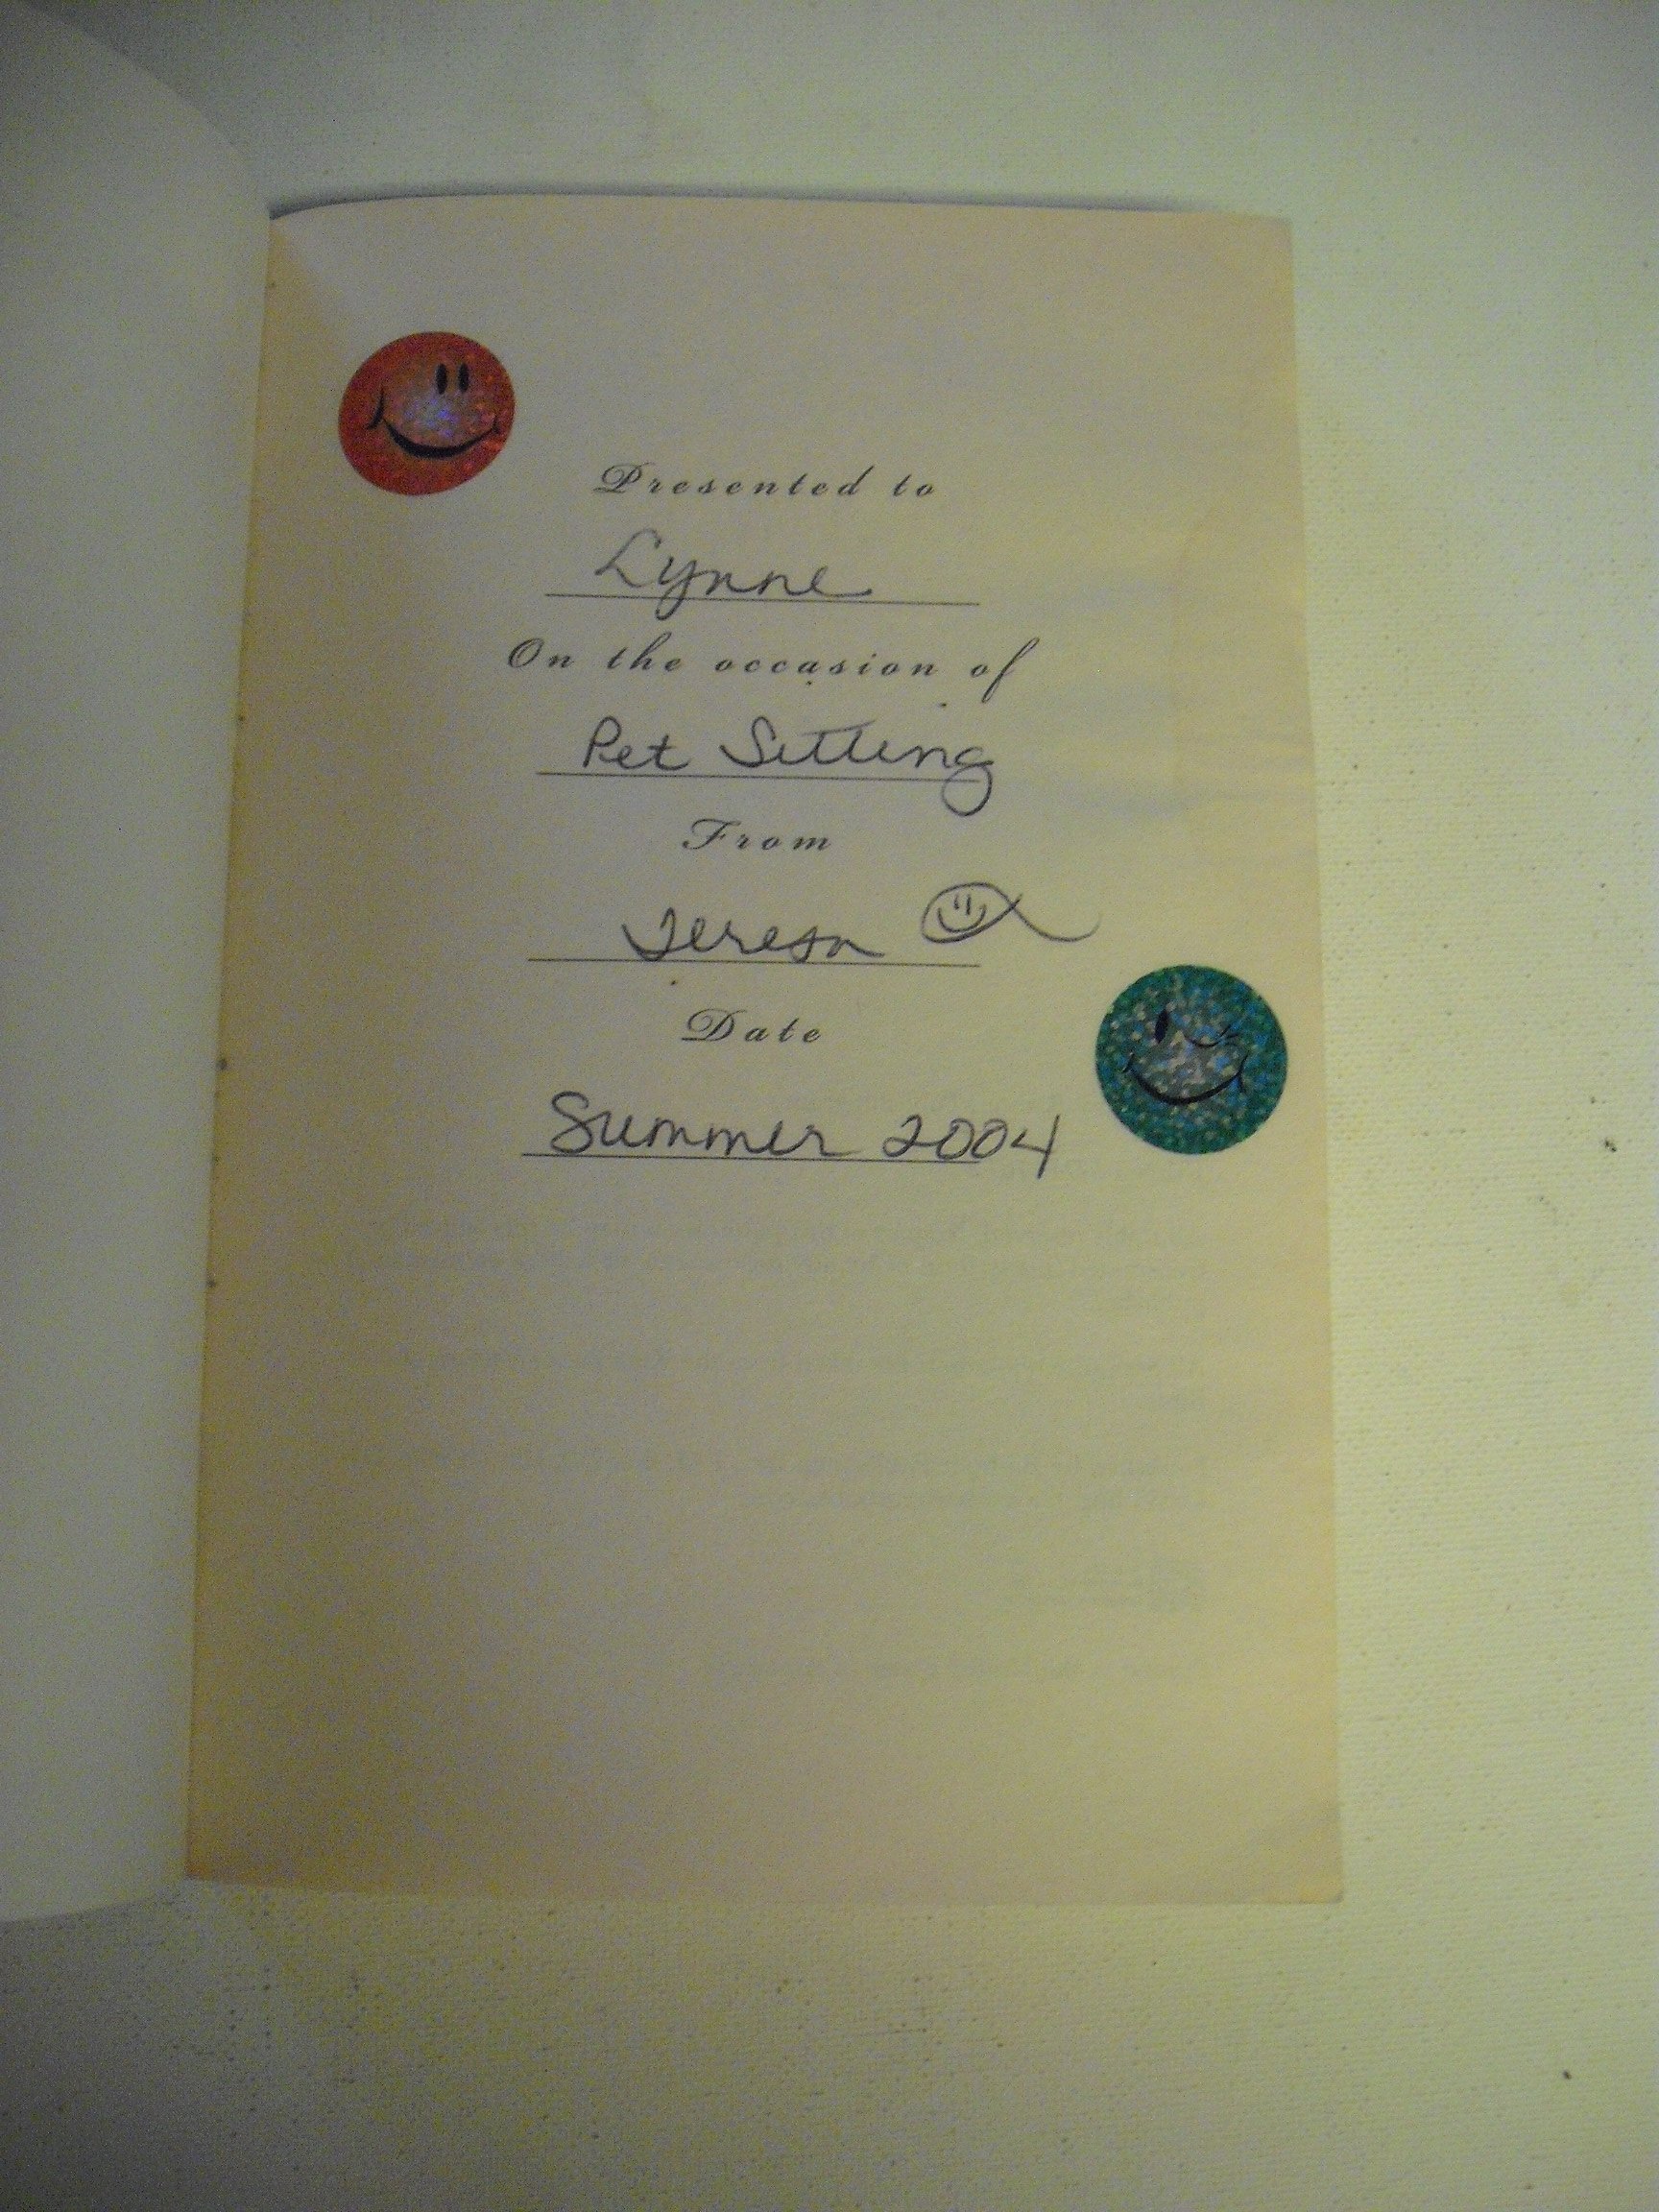 Presented to
Lynne
On the occasion of
Pet Sitting
From
Teresa
Date
Summer 2004